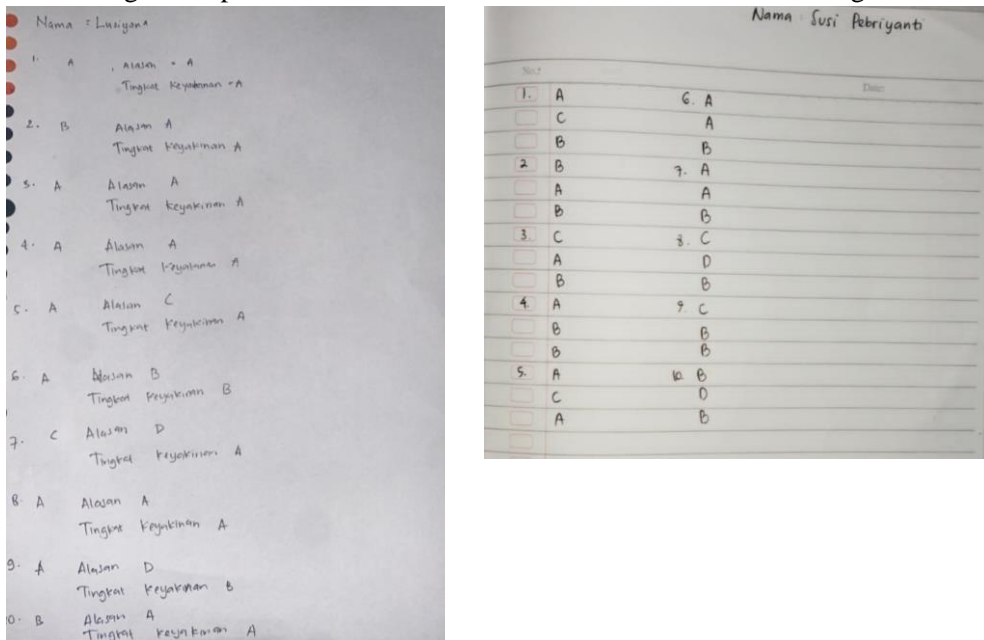 Nama : Lusiyana
1. A , Alasan = A
Tingkat Keyakinan = A
2. B Alasan A
Tingkat Keyakinan A
3. A Alasan A
Tingkat Keyakinan A
4. A Alasan A
Tingkat Keyakinan A
5. A Alasan C
Tingkat Keyakinan A
6. A Alasan B
Tingkat Keyakinan B
7. C Alasan D
Tingkat Keyakinan A
8. A Alasan A
Tingkat Keyakinan A
9. A Alasan D
Tingkat Keyakinan B
0. B Alasan A
Tingkat Keyakinan A
Nama : Susi Pebriyanti
No.:
Date:
1. A 6. A
C A
B B
2 B 7. A
A A
B B
3. C 8. C
A D
B B
4. A 9. C
B B
B B
5. A 10. B
C D
A B